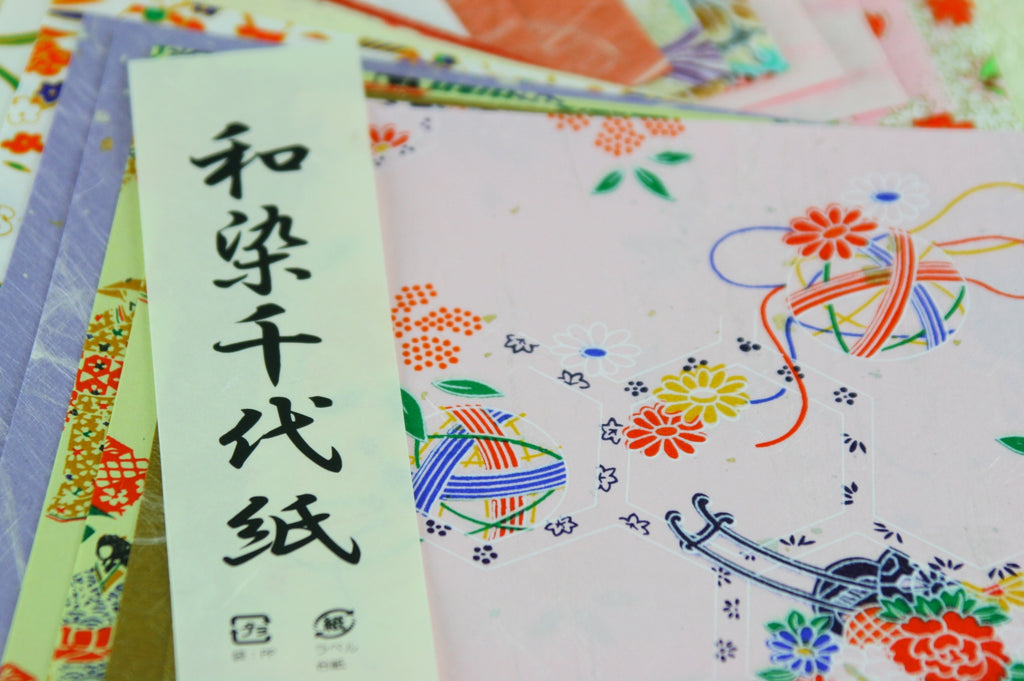 和染千代紙
プラ 紙
袋:PP ラベル
台紙